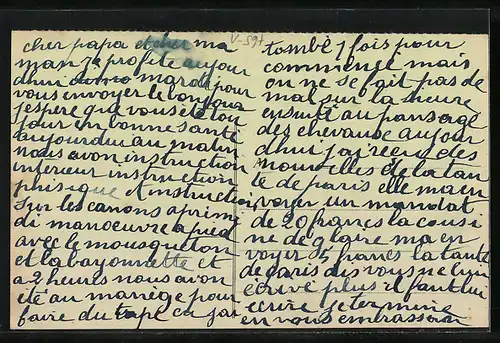 V-597
cher papa et cher ma
man je profite aujour
dhui mardi pour
vous envoyer le bonjour
jespere que vous ete tou
jour en bonne santé
aujourdui au matin
nous avon instruction
interieur instruction
phisique et instruction
sur les canons aprimi
di manoeuvre a pied
avec le mousqueton
et la bayonnette et
a 2 heures nous avon
été au manège pour
faire du tape cu jai
tombé 7 fois pour
commience mais
on ne se fait pas de
mal sur la sieure
ensuite au pansage
des chevaux aujour
dhui jai recu des
nouvelles de la tan
te de paris elle ma en
voyer un mandat
de 20 francs la cousi
ne de glaire ma en
voyer 5 francs la tante
de paris dis vous ne lui
ecrivé plus il faut lui
ecrire je termine
en vous embrassan